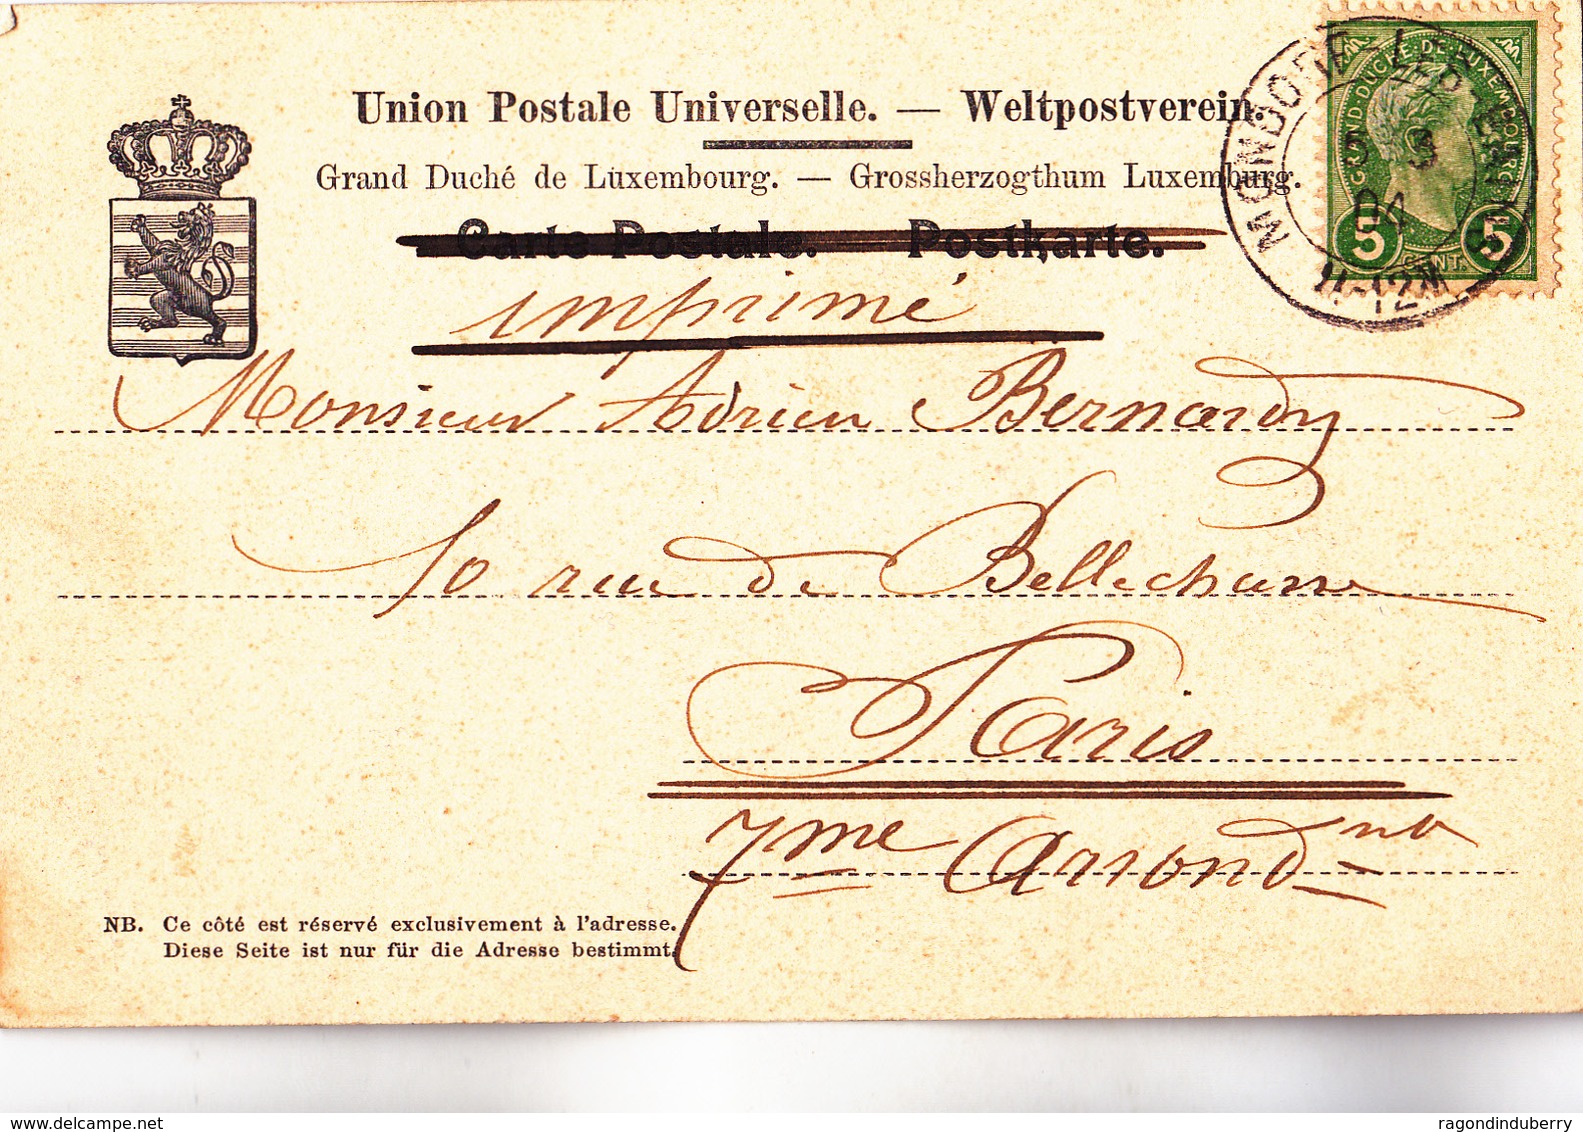 Union Postale Universelle. — Weltpostverein.
Grand Duché de Luxembourg. — Grossherzogthum Luxemburg.
Carte Postale. — Postkarte.
imprimé
Monsieur Adrien Bernardy
10 rue de Bellechasse
Paris
7me Arrond
NB. Ce côté est réservé exclusivement à l'adresse.
Diese Seite ist nur für die Adresse bestimmt.
GRAND-DUCHÉ-DE-LUXEMBOURG
5 CENT. 5
MONDORF-LES-BAINS
5 3
04
11-12M
delcampe.net
ragondinduberry